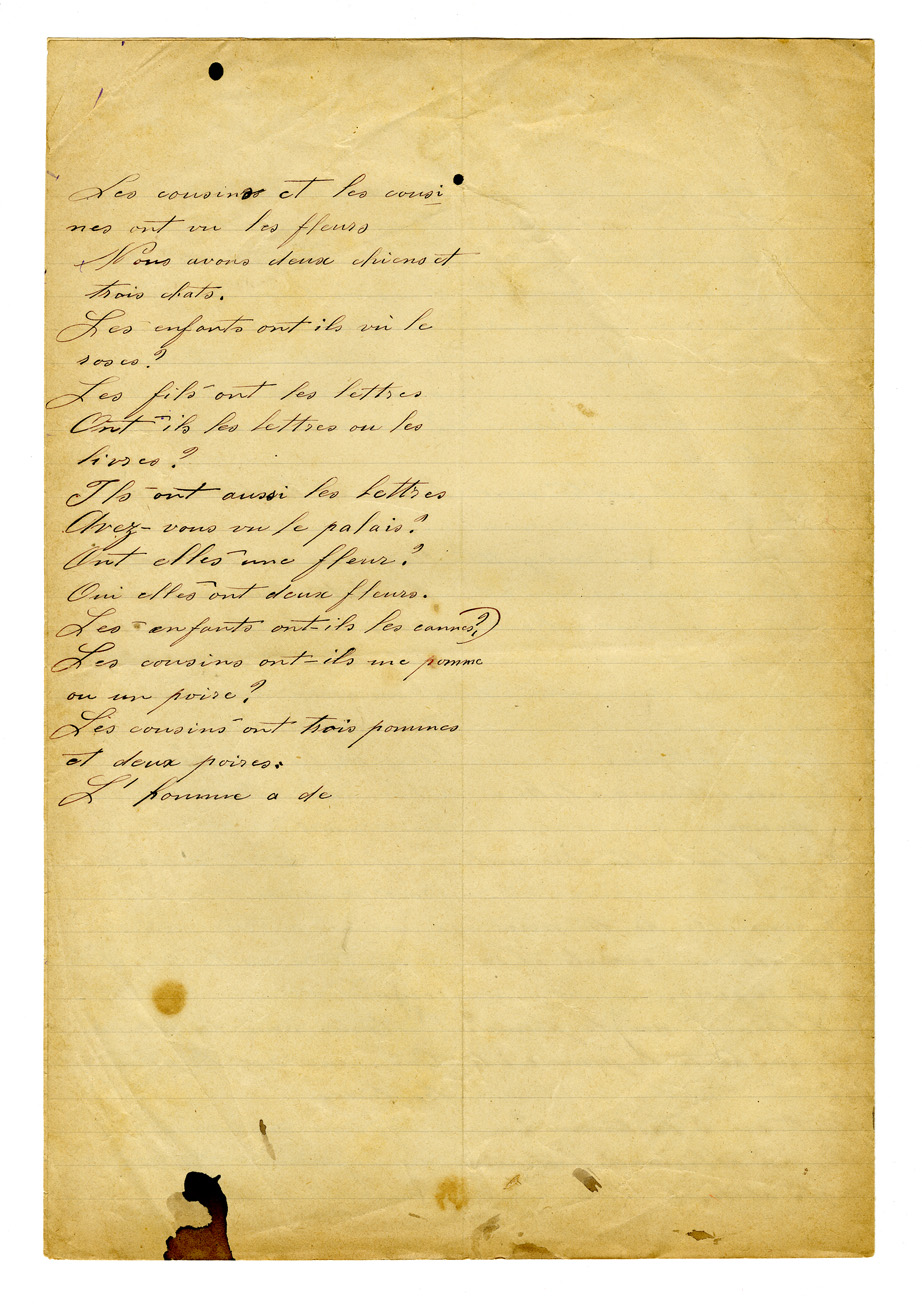 Les cousins et les cousi
nes ont vu les fleurs
Nous avons deux chiens et
trois chats.
Les enfants ont ils vu le
roses?
Les fils ont les lettres
Ont-ils les lettres ou les
livres?
Ils ont aussi les lettres
Avez-vous vu le palais?
Ont elles une fleur?
Oui elles ont deux fleurs.
Les enfants ont-ils les cannes?
Les cousins ont-ils une pomme
ou un poire?
Les cousins ont trois pommes
et deux poires.
L'homme a de